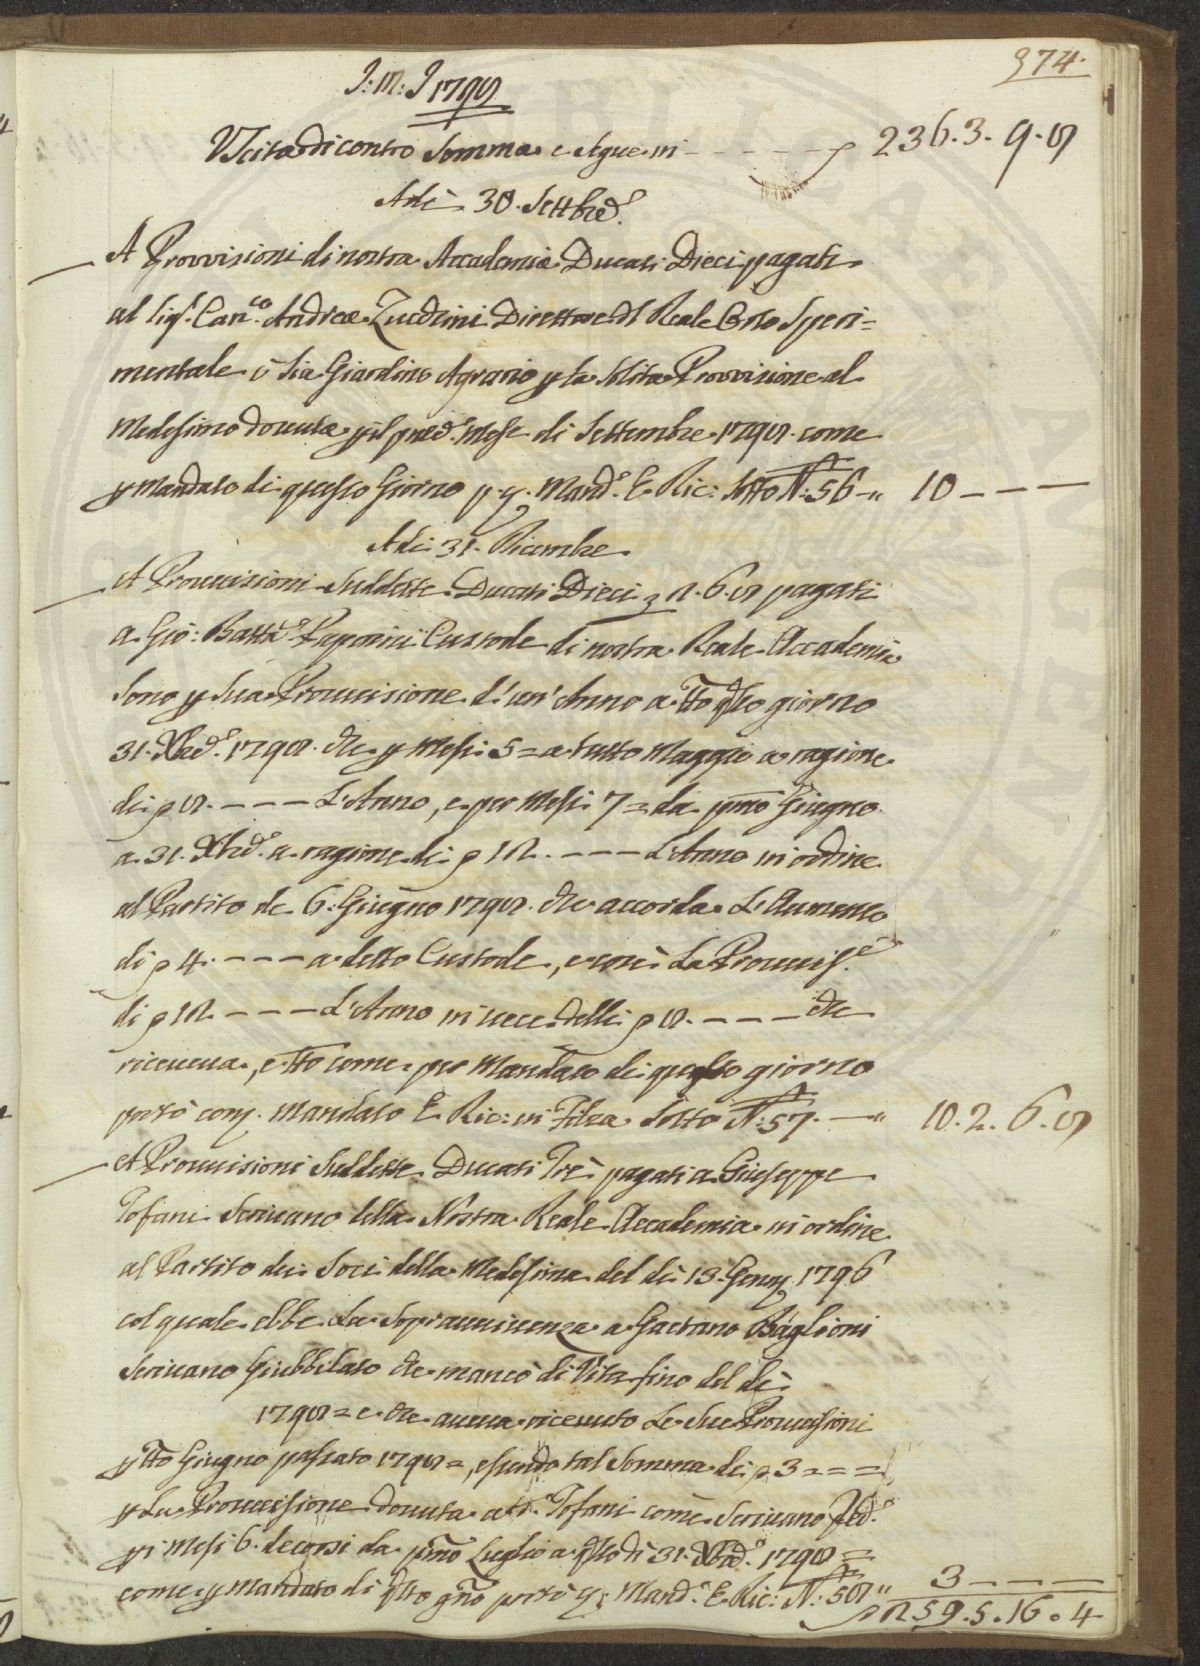 374.
J: M: J 1798
Uscita di contro Somma e segue in - - - - - 236.3. 9.8
Adì 30. Settbre
A Provvisioni di nostra Accademia Ducati Dieci pagati
al Sigr. Canco. Andrea Zucchini Direttore del Reale Orto Speri=
mentale o sia Giardino Agrario p la solita Provvisione al
Medesimo dovuta p il pred.o Mese di Settembre 1798. come
p Mandato di questo Giorno p. Mand.o E Ric: sotto N: 56 -" 10 - - -
Adì 31. Dicembre
A Provvisioni Suddette Ducati Dieci 2. 6. 8 pagati
a Gio: Batta Paperini Custode di nostra Reale Accademia
sono p sua Provvisione d'un' Anno a tto qsto giorno
31. Xbre. 1798. che p Mesi 5 = a tutto Maggio a ragione
di p 8. - - - - L'Anno, e per Mesi 7 = da pmo Giugno
a 31. Xbre. a ragione di p 12. - - - L'Anno in ordine
al Partito de 6. Giugno 1798. che accorda L'Aumento
di p 4. - - - a detto Custode, e così La Provvise.
di p 12. - - - L'Anno in vece delli p 8. - - - - che
riceveva, e tto come per Mandato di questo giorno
portò Mandato E Ric: in Filza Sotto N: 57. -" 10. 2. 6. 8
A Provvisioni Suddette Ducati Trè pagati a Giuseppe
Tofani Scrivano della Nostra Reale Accademia in ordine
al Partito dei Soci della Medesima del dì 13. Genn 1796
col quale ebbe La Sopravvivenza a Gaetano Baglioni
Scrivano Giubbilato che mancò di Vita fino del dì
1798 = e che aveva ricevuto Le Sue Provvisioni
p tto Giugno passato 1798 =, essendo tal Somma di p 3 = = =
p La Provvisione dovuta a d.o Tofani come Scrivano
p i Mesi 6. decorsi da pmo Luglio a qsto dì 31. Xbre. 1798 =
come p Mandato di qsto gno portò Mand.o E Ric: N: 58 " 3 - - -
p 259. 5. 16. 4